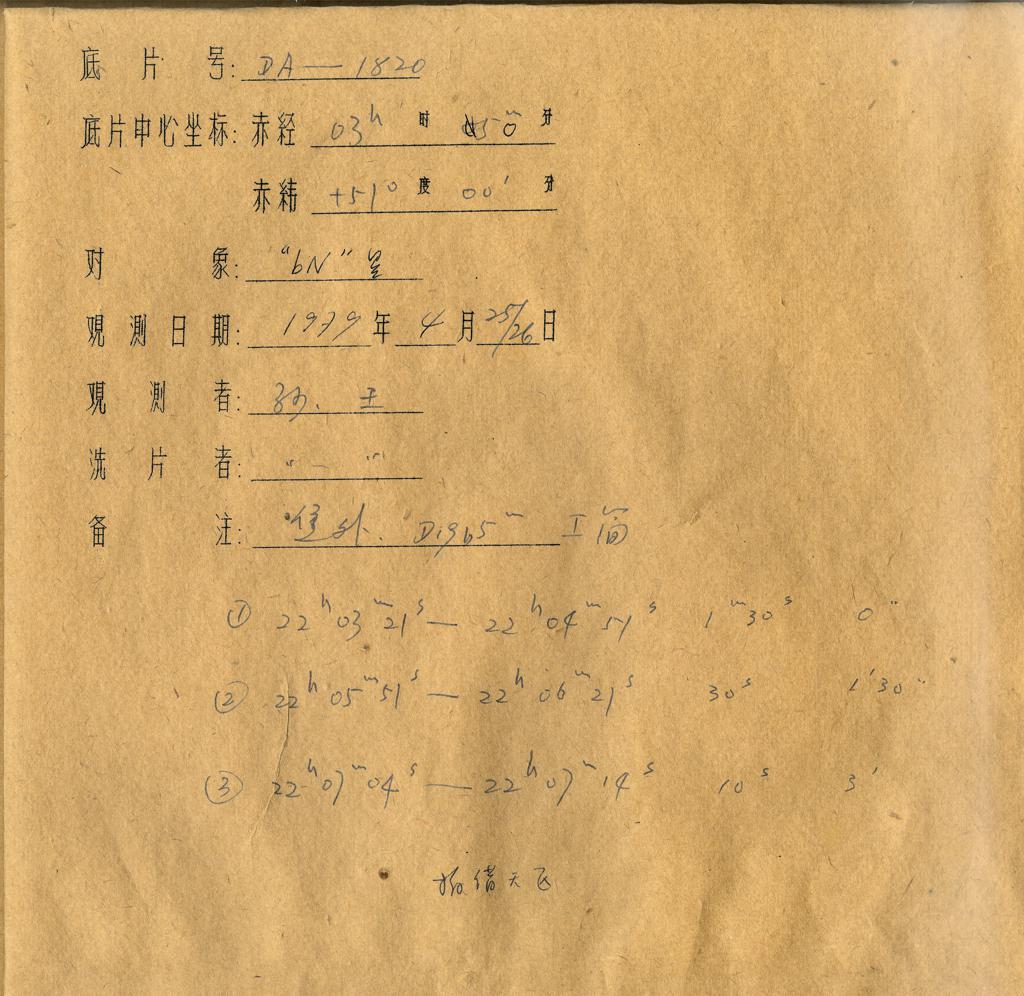 底片号: DA—1820
底片中心坐标: 赤经 03ʰ 时 50ᵐ 分
赤纬 +51° 度 00′ 分
对象: "bN"星
观测日期: 1979年4月25/26日
观测者: 孙、王
洗片者: " — "
备注:
① 22ʰ03ᵐ21ˢ — 22ʰ04ᵐ51ˢ 1ᵐ30ˢ 0″
② 22ʰ05ᵐ51ˢ — 22ʰ06ᵐ21ˢ 30ˢ 1′30″
③ 22ʰ07ᵐ04ˢ — 22ʰ07ᵐ14ˢ 10ˢ 3′